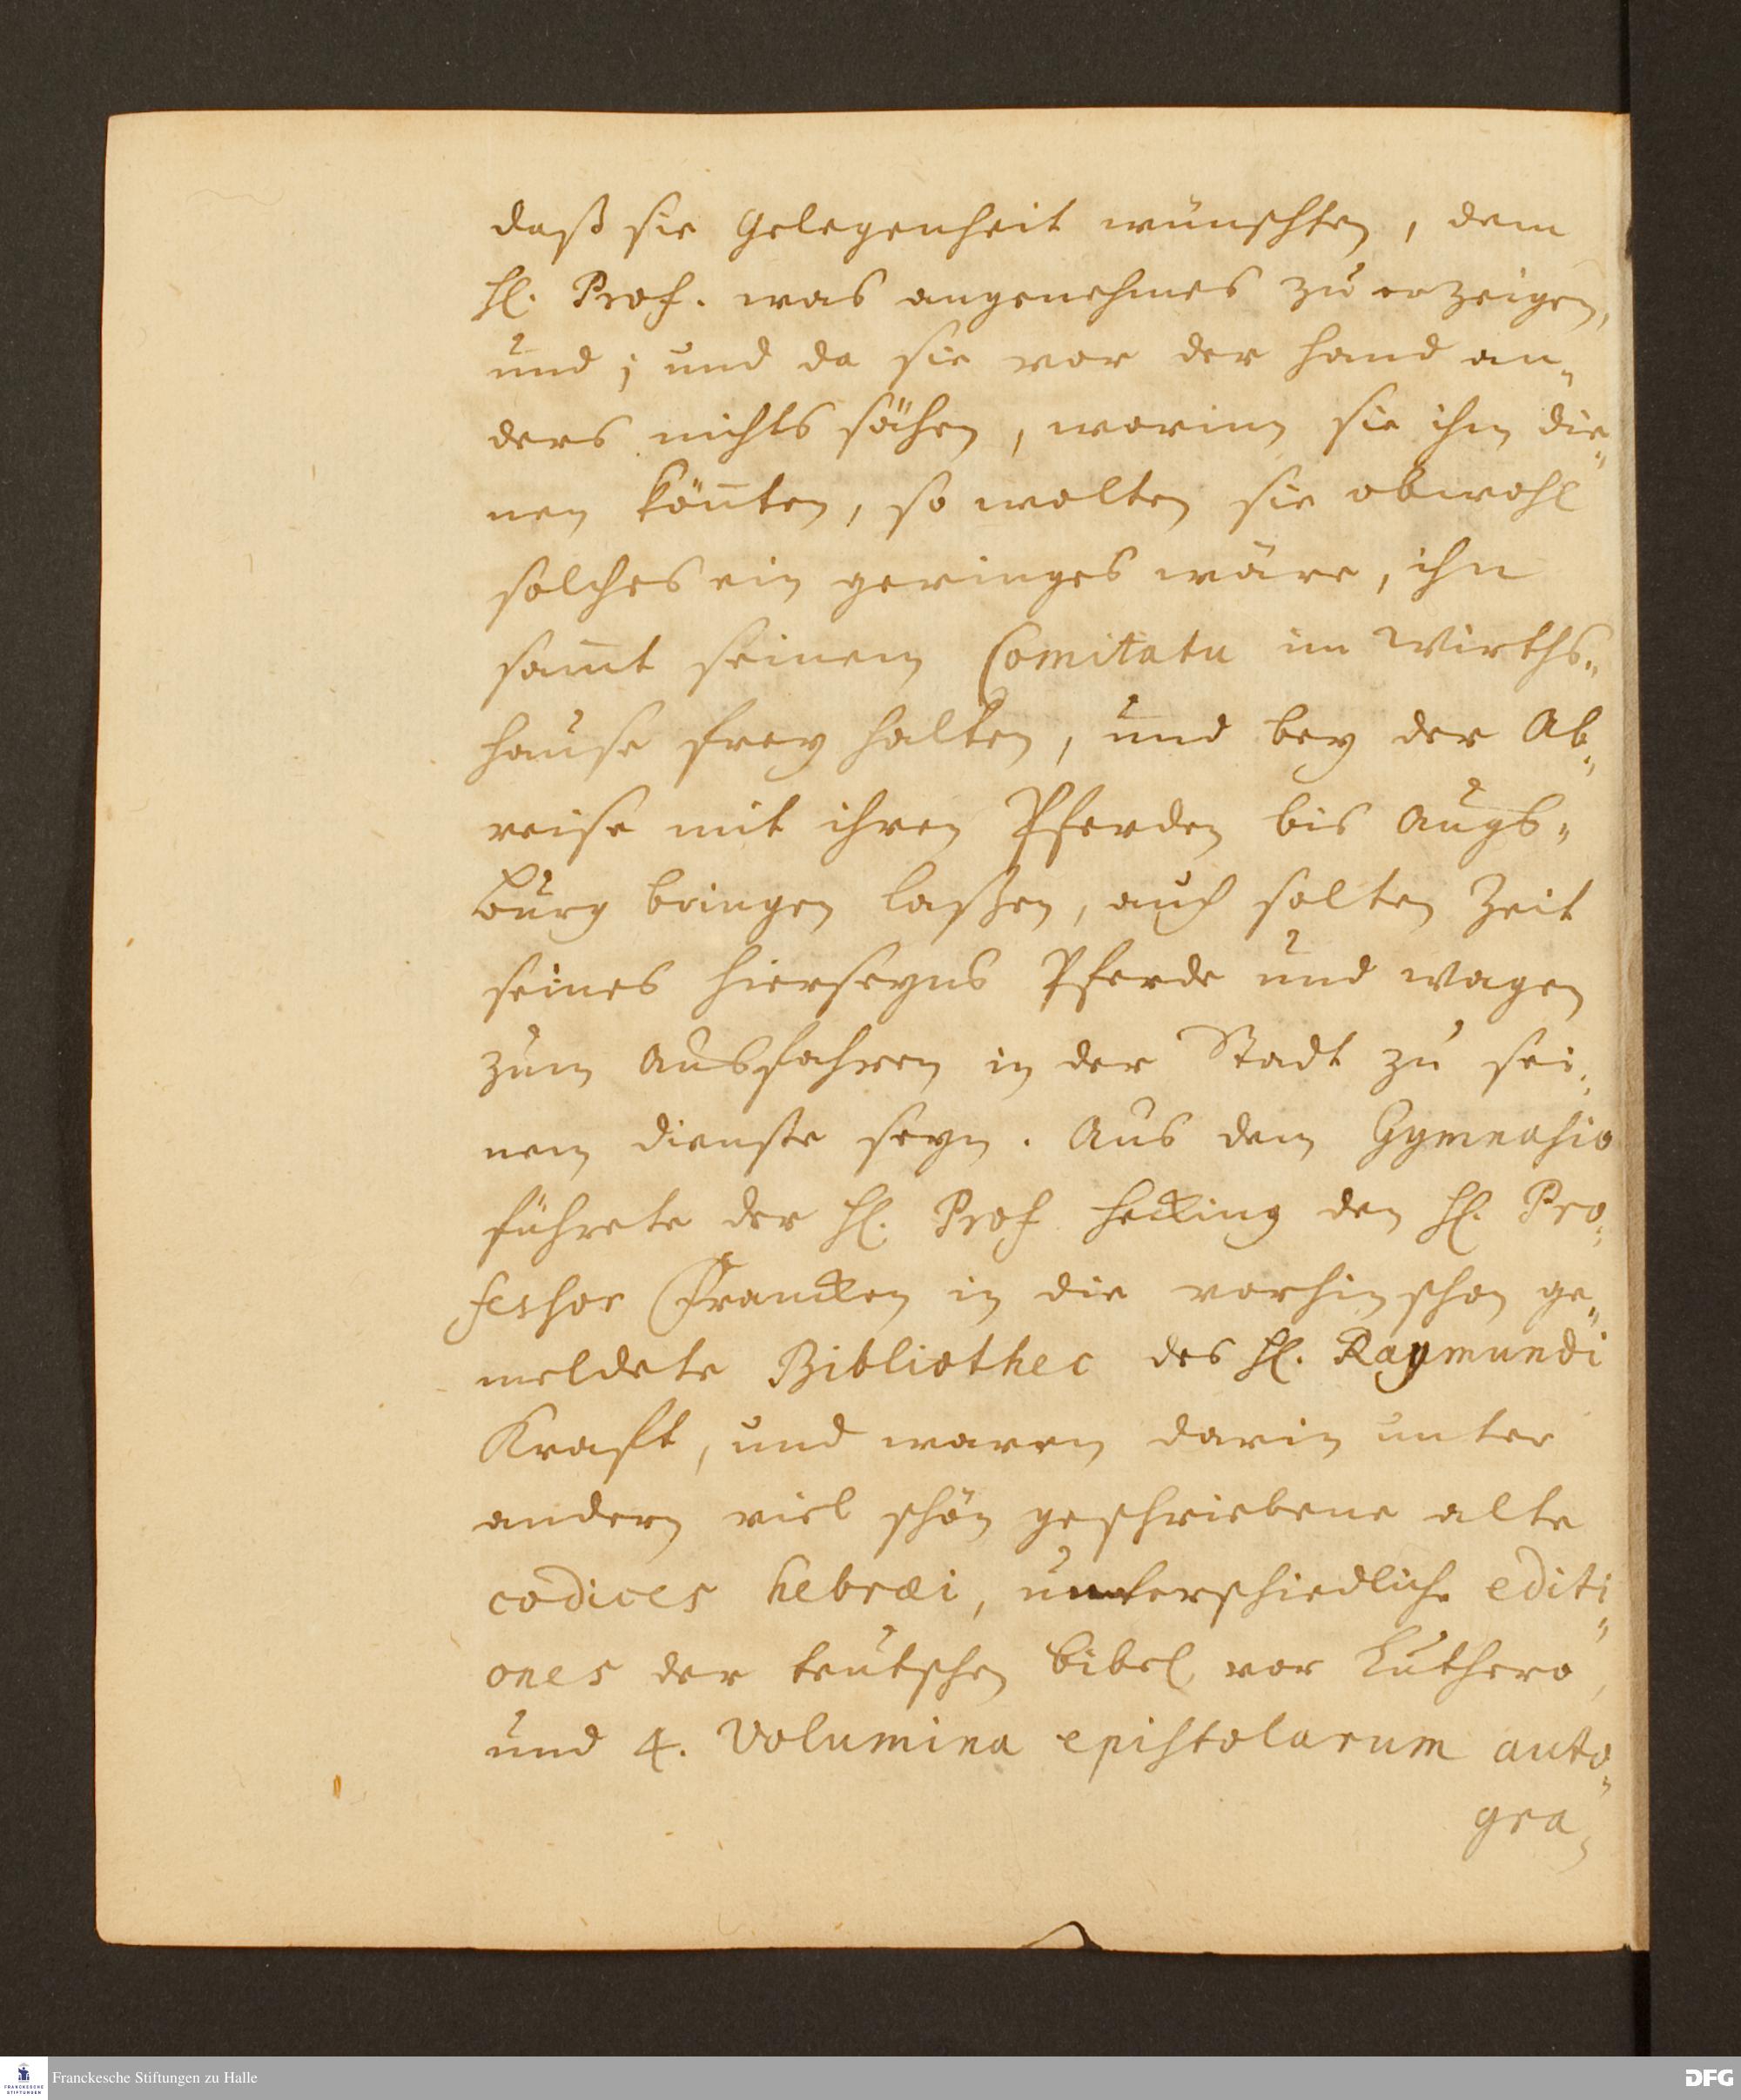 daß sie Gelegenheit wünschten, dem
H. Prof. was angenehmes zu erzeigen,
und; und da sie vor der Hand an„
ders nichts sähen, worinn sie ihm die„
nen kön̄ten, so wolten sie obwohl
solches ein geringes wäre, ihn
sam̄t seinem Comitatu im Wirths„
hause frey halten, und bey der Ab„
reise mit ihren Pferden bis Augs„
burg bringen laßen, auch solten Zeit
seines hierseyns Pferde und Wagen
zum Ausfahren in der Stadt zu sei„
nem dienste seyn. Aus dem Gymnasio
führete der H. Prof Hecking den H. Pro„
fessor Francken in die vorhin schon ge„
meldete Bibliothec des H. Raymundi
Krafft, und waren darin unter
andern viel schön geschriebene alte
codices hebræi, unterschiedliche editi„
ones der teutschen Bibel vor Luthero,
und 4. Volumina epistolarum auto„
gra„
Franckesche Stiftungen zu Halle
FRANCKESCHE
STIFTUNGEN
DFG